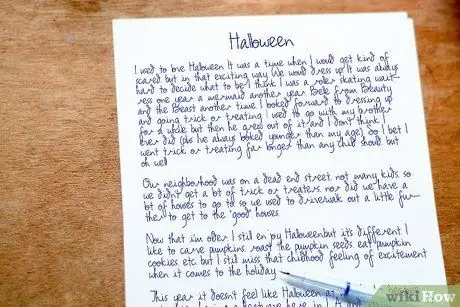 Halloween
I used to love Halloween It was a time when I would get kind of
scared but in that exciting way We would dress up It was always
hard to decide what to be I think I was a roller skating wait-
ress one year a mermaid another year Belle from Beauty
and the Beast another time I looked forward to dressing up
and going trick or treating I used to go with my brother
for a while but then he grew out of it and I don't think I
ever did (plus I've always looked younger than my age) So I bet I
went trick or treating far longer than any child should but
oh well
Our neighborhood was on a dead end street not many kids so
we didn't get a lot of trick or treaters nor did we have a
lot of houses to go to so we used to drive/walk out a little fur-
ther to get to the "good" houses
Now that i'm older I still enjoy Halloween but it's different I
like to carve pumpkins roast the pumpkin seeds eat pumpkin
cookies etc but I still miss that childhood feeling of excitement
when it comes to the holiday
This year it doesn't feel like Halloween at
wikiHow